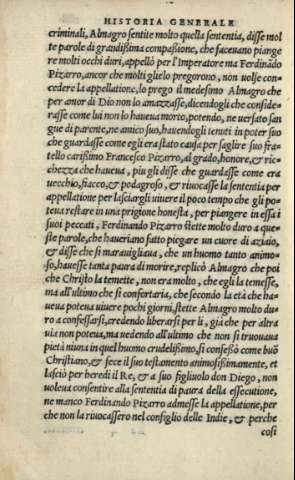 HISTORIA GENERALE
criminali, Almagro sentite molto quella sententia, disse mol
te parole di grandißima compaßione, che facevano piange
re molti occhi duri, appellò per l'Imperatore ma Ferdinãdo
Pizarro, ancor che molti glielo pregorono, non uolse con-
cedere la appellatione, lo prego il medesimo Almagro che
per amor di Dio non lo amazzasse, dicendogli che conside-
rasse come lui non lo haueua morio, potendo, ne uersato san
gue di parente, ne amico suo, hauendogli tenuti in poter suo
che guardasse come egli era stato causa per saglire suo fra-
tello carißimo Francesco Pizarro, al grado, honore, & ric-
chezza che haueua, piu gli disse che guardasse come era
uecchio, fiacco, & podagroso, & riuocasse la sententia per
appellatione per lasciargli uiuere il poco tempo che gli po-
teua restare in una prigione honesta, per piangere in essa i
suoi peccati, Ferdinando Pizarro stette molto duro a que-
ste parole, che haueriano fatto piegare un cuore di aziaio,
& disse che si marauigliaua, che un huomo tanto animo-
so, hauesse tanta paura di morire, replicò Almagro che poi
che Christo la temette, non era molto, che egli la temesse,
ma all'ultimo che si confortaria, che secondo la età che ha-
ueua poteua uiuere pochi giorni, stette Almagro molto du-
ro a confessarsi, credendo liberarsi per li, già che per altra
uia non poteua, ma uedendo all'ultimo che non si trouaua
pietà niuna in quel huomo crudelißimo, si confessò come buõ
Christiano, & fece il suo testamento animosißimamente, et
lasciò per heredi il Re, & a suo figliuolo don Diego, non
uoleua consentire alla sententia di paura della essecutione,
ne manco Ferdinando Pizarro admesse la appellatione, per
che non la riuocassero nel consiglio delle Indie, & perche
cosi